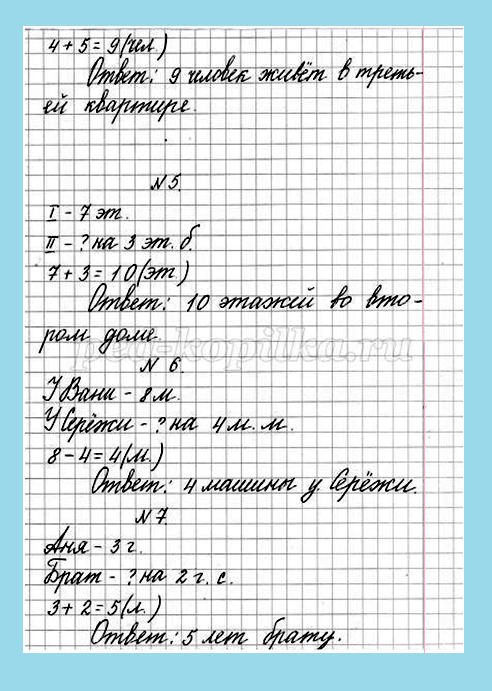 4 + 5 = 9 (чел.)
Ответ: 9 человек живёт в треть-
ей квартире.
N 5.
I - 7 эт.
II - ? на 3 эт. б.
7 + 3 = 10 (эт.)
Ответ: 10 этажей во вто-
ром доме.
pedkopilka.ru
N 6.
У Вани - 8 м.
У Серёжи - ? на 4 м. м.
8 - 4 = 4 (м.)
Ответ: 4 машины у Серёжи.
N 7.
Аня - 3 г.
Брат - ? на 2 г. с.
3 + 2 = 5 (л.)
Ответ: 5 лет брату.